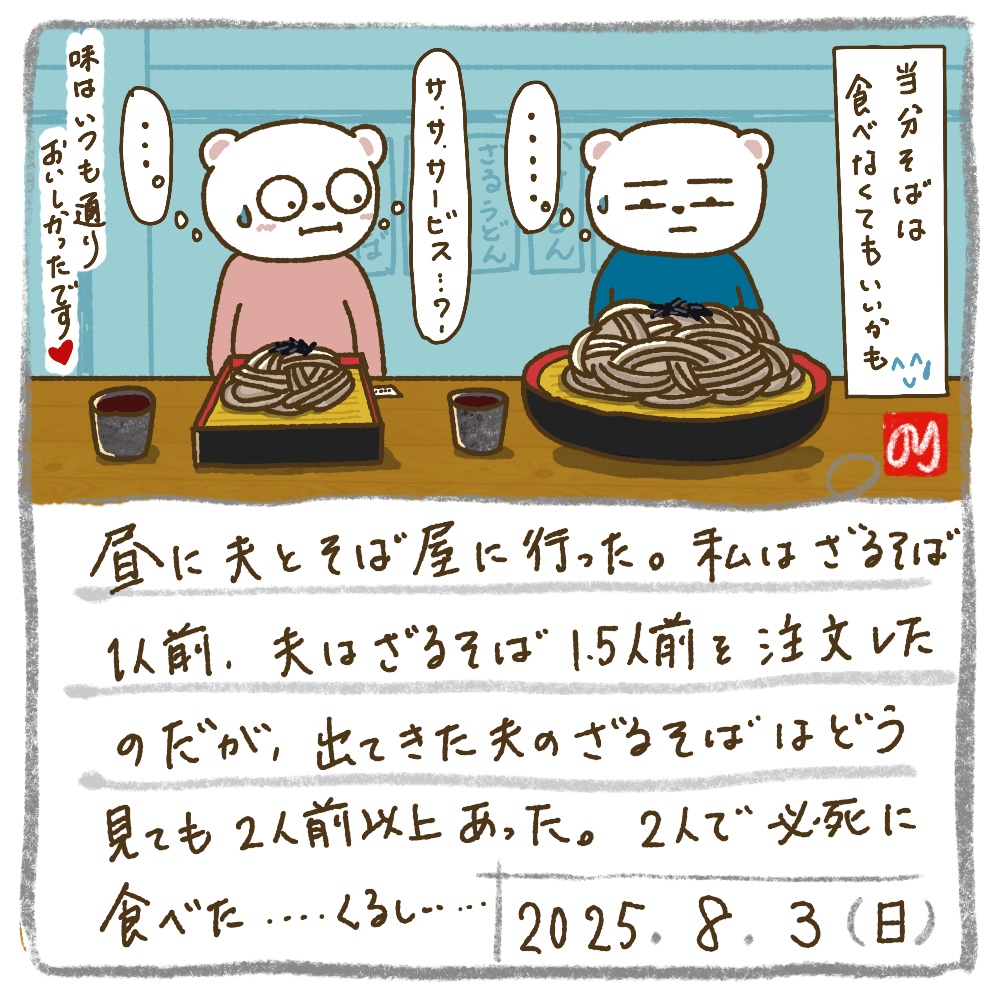 当分そばは
食べなくてもいいかも
・・・・・
サ、サ、サービス…?
・・・。
味はいつも通り
おいしかったです♥
ざるうどん
うどん
ば
のり
昼に夫とそば屋に行った。私はざるそば
1人前、夫はざるそば1.5人前を注文した
のだが、出てきた夫のざるそばはどう
見ても2人前以上あった。2人で必死に
食べた‥‥くるしい…
2025.8.3(日)